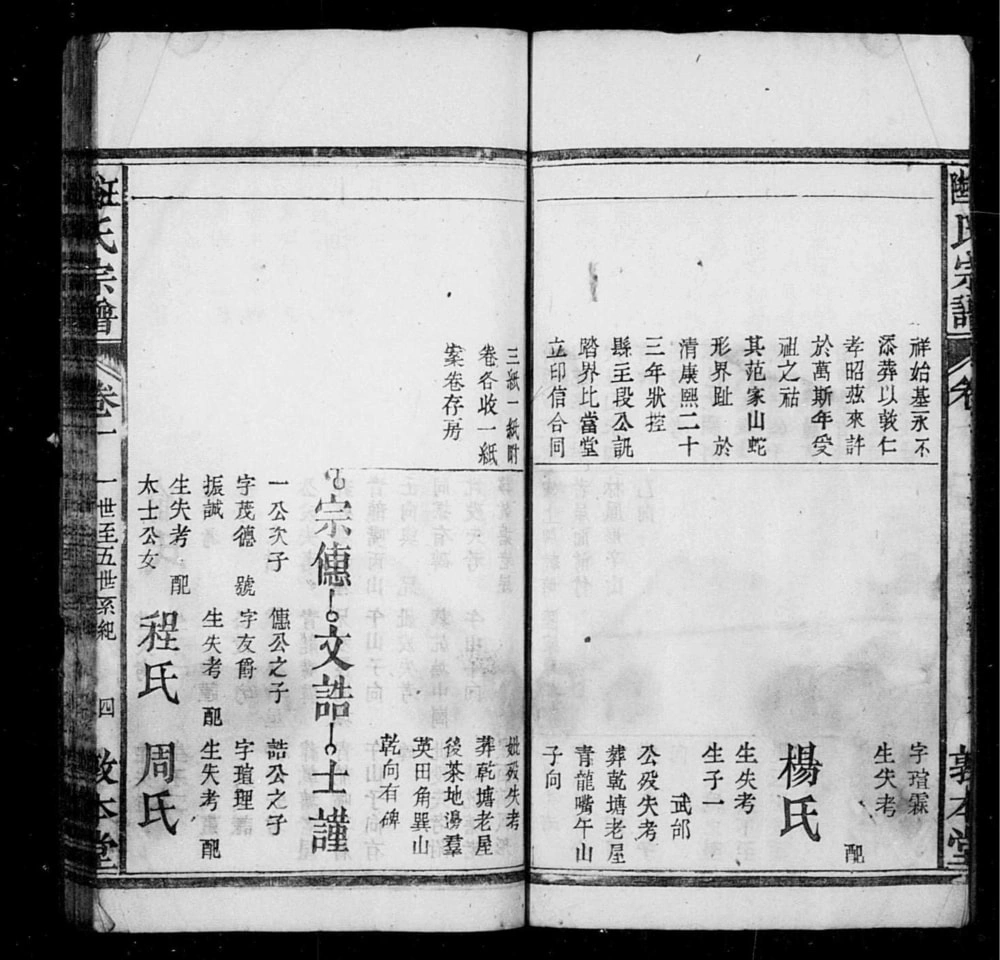 氏宗譜
祥始基永不
添葬以敦仁
孝昭茲來許
於萬斯年受
祖之祜
其范家山蛇
形界趾於
清康熙二十
三年狀控
縣主段公訊
踏界比當堂
立印信合同
字瑄霖
生失考 配
楊氏
生失考
生子一
武邰
公歿失考
葬乾塘老屋
青龍嘴午山
子向
敦本堂
三紙一紙附
卷各收一紙
案卷存房
妣歿失考
葬乾塘老屋
後茶地邊羣
英田角巽山
乾向有碑
宗僡 文誥 士謹
一公次子
字茂德 號
振誠
生失考 配
太士公女
程氏
僡公之子
字友爵
生失考 配
周氏
誥公之子
字瑄理
生失考 配
氏宗譜 卷一 一世至五世系紀 四 敦本堂